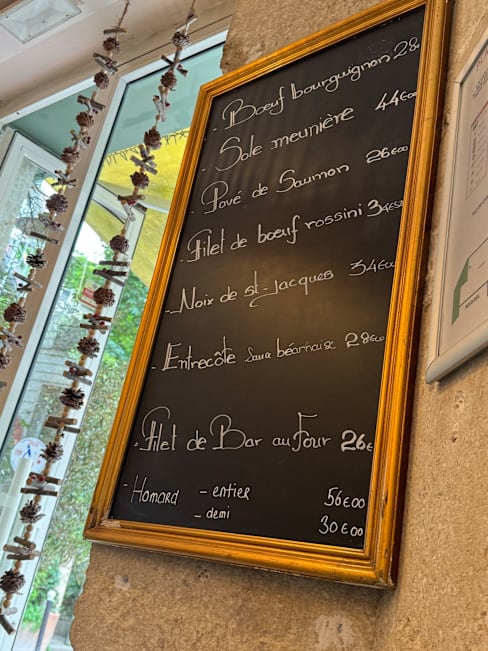 - Bœuf bourguignon 28
- Sole meunière 44€00
- Pavé de Saumon 26€00
- Filet de bœuf rossini 34€50
- Noix de st-Jacques 34€00
- Entrecôte Sauce béarnaise 28€00
- Filet de Bar au Four 26€
- Homard - entier 56€00
- demi 30€00